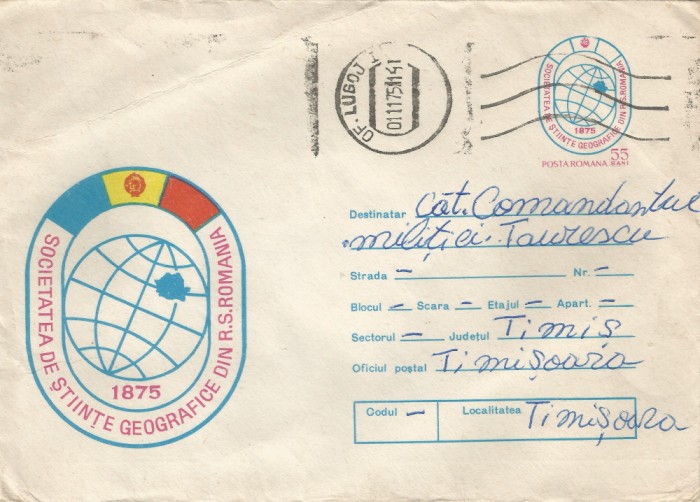 OF. LUGOJ 1
01 11 75
SOCIETATEA DE ȘTIINȚE GEOGRAFICE DIN R.S.ROMANIA
1875
POSTA ROMANA 55 BANI
Destinatar Căt. Comandantul
miliției. Taurescu
Strada — Nr. —
Blocul — Scara — Etajul — Apart. —
Sectorul — Județul Timiș
Oficiul poștal Timișoara
Codul — Localitatea Timișoara
SOCIETATEA DE ȘTIINȚE GEOGRAFICE DIN R.S.ROMANIA
1875